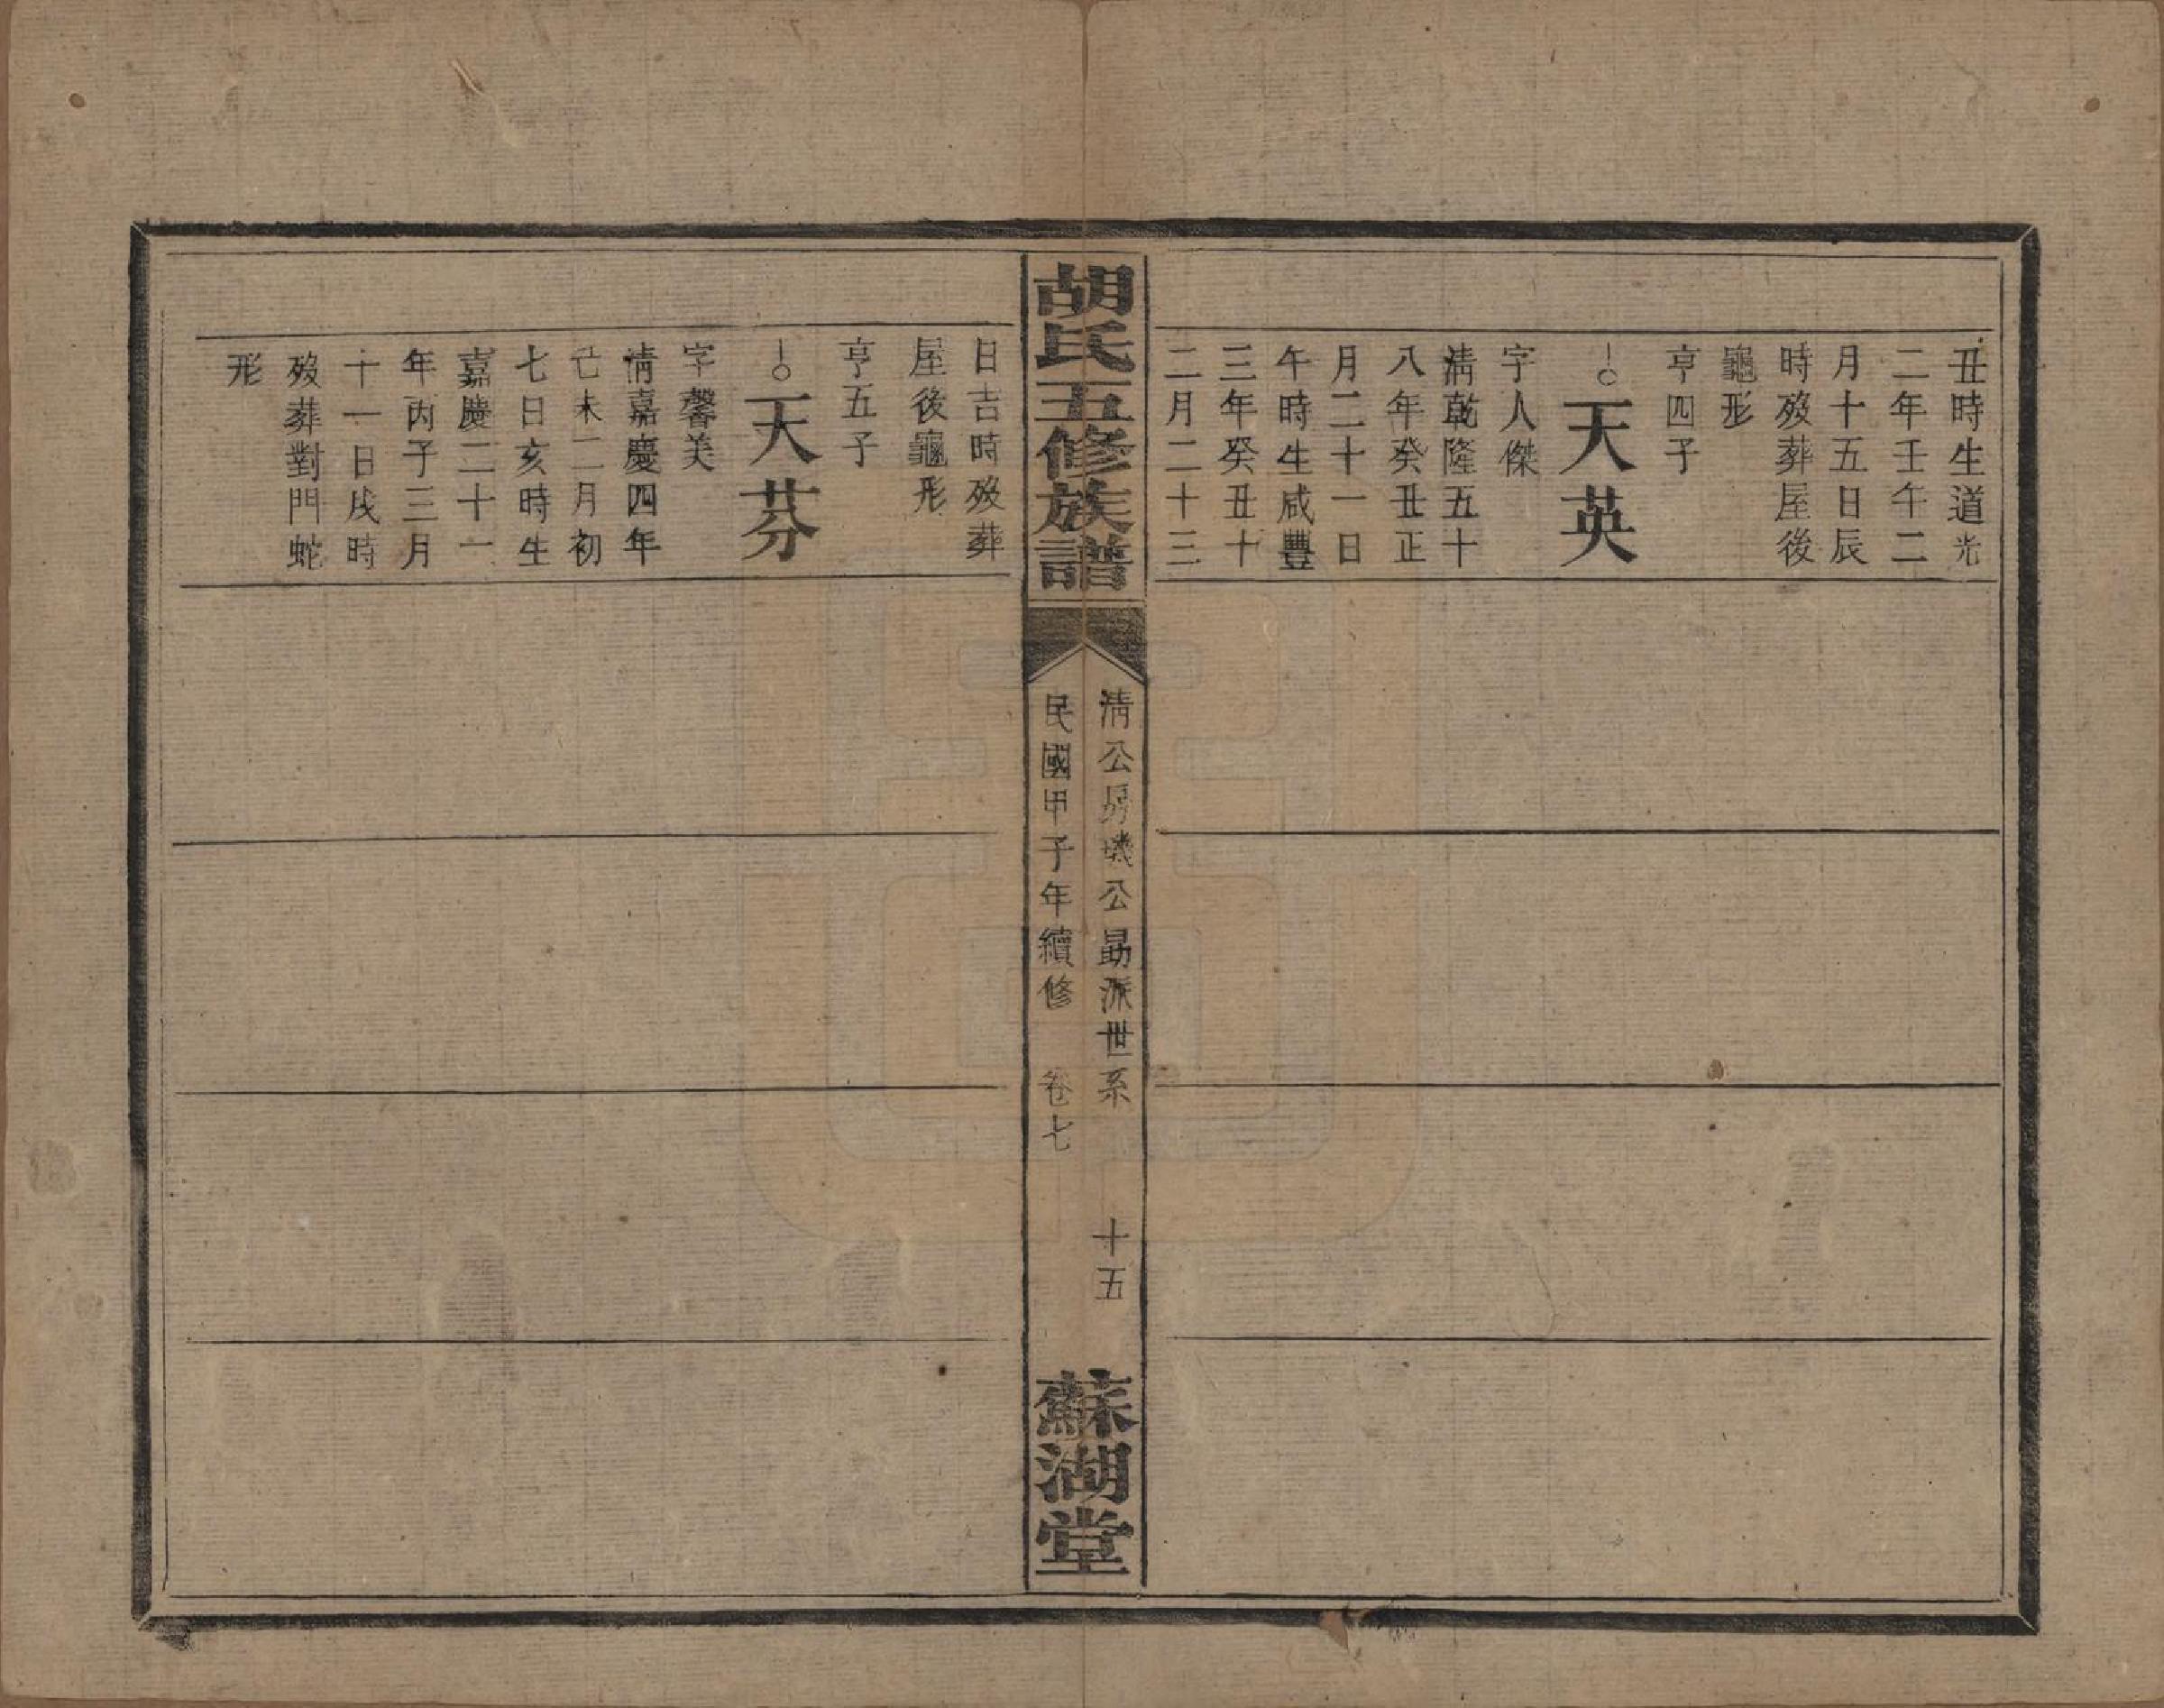 丑時生道光
二年壬午二
月十五日辰
時歿葬屋後
龜形
亨四子
天英
字人傑
淸乾隆五十
八年癸丑正
月二十一日
午時生咸豐
三年癸丑十
二月二十三
胡氏五修族譜
淸公房璣公勗派世系
十五
民國甲子年續修
卷七
蘇湖堂
日吉時歿葬
屋後龜形
亨五子
天芬
字馨美
淸嘉慶四年
己未二月初
七日亥時生
嘉慶二十一
年丙子三月
十一日戌時
歿葬對門蛇
形